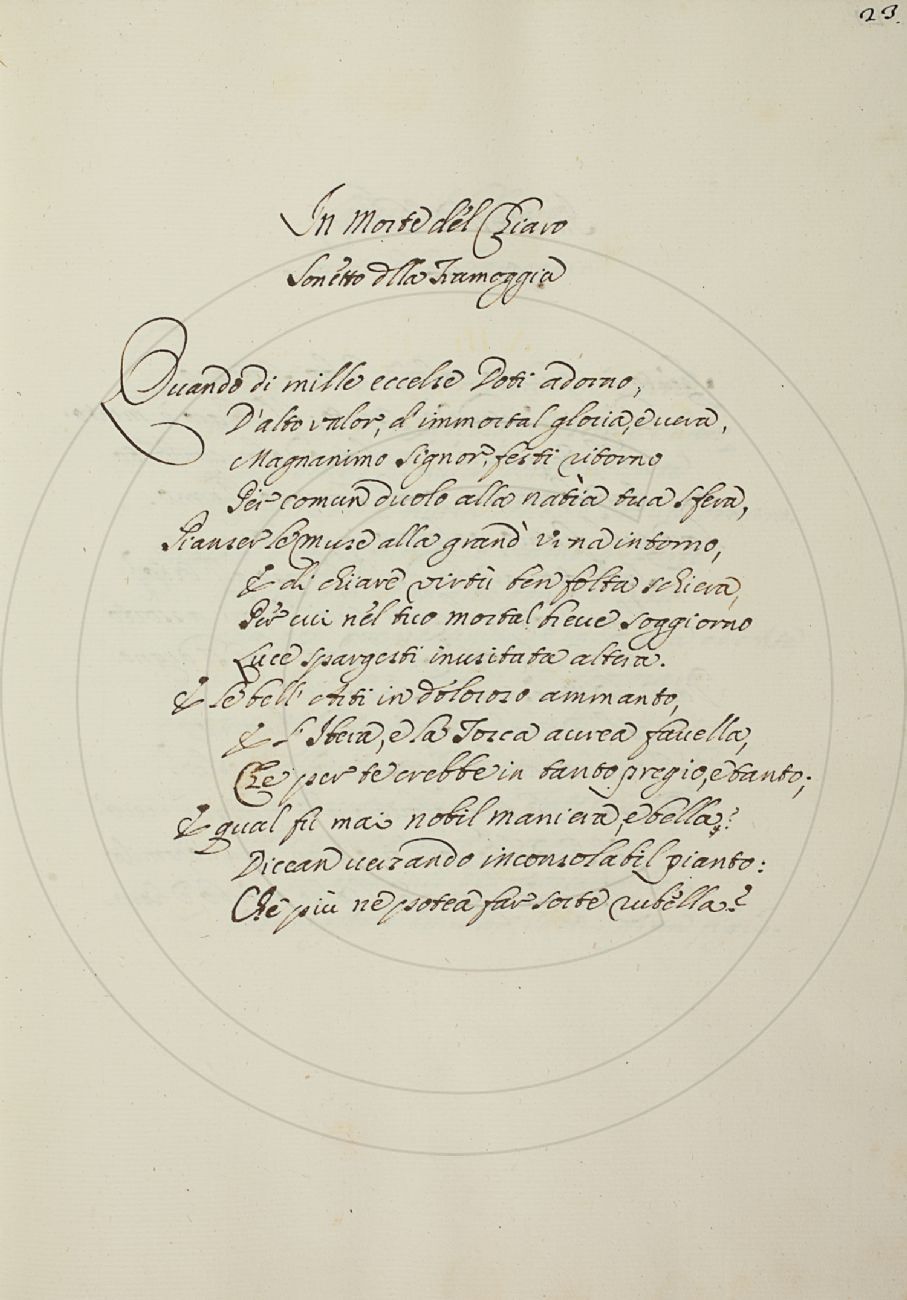 23.
In Morte del Chiaro
Sonetto dlla Tramoggia
Quando di mille eccelse Doti adorno,
D'alto valor, d'immortal gloria, e vera,
Magnanimo Signor, festi ritorno
Per comun duolo alla natìa tua sfera,
Pianser le Muse alla grand' Urna intorno,
E di chiare virtù ben folta schiera,
Per cui nel tuo mortal breve soggiorno
Luce spargesti inusitata altera.
E le bell' Arti in doloroso ammanto,
E l'Ibera, e la Tosca aurea favella,
Che per te crebbe in tanto pregio, e tanto;
E qual fù mai nobil maniera, e bella?
Dicean versando inconsolabil pianto:
Che più ne potea far sorte rubella?